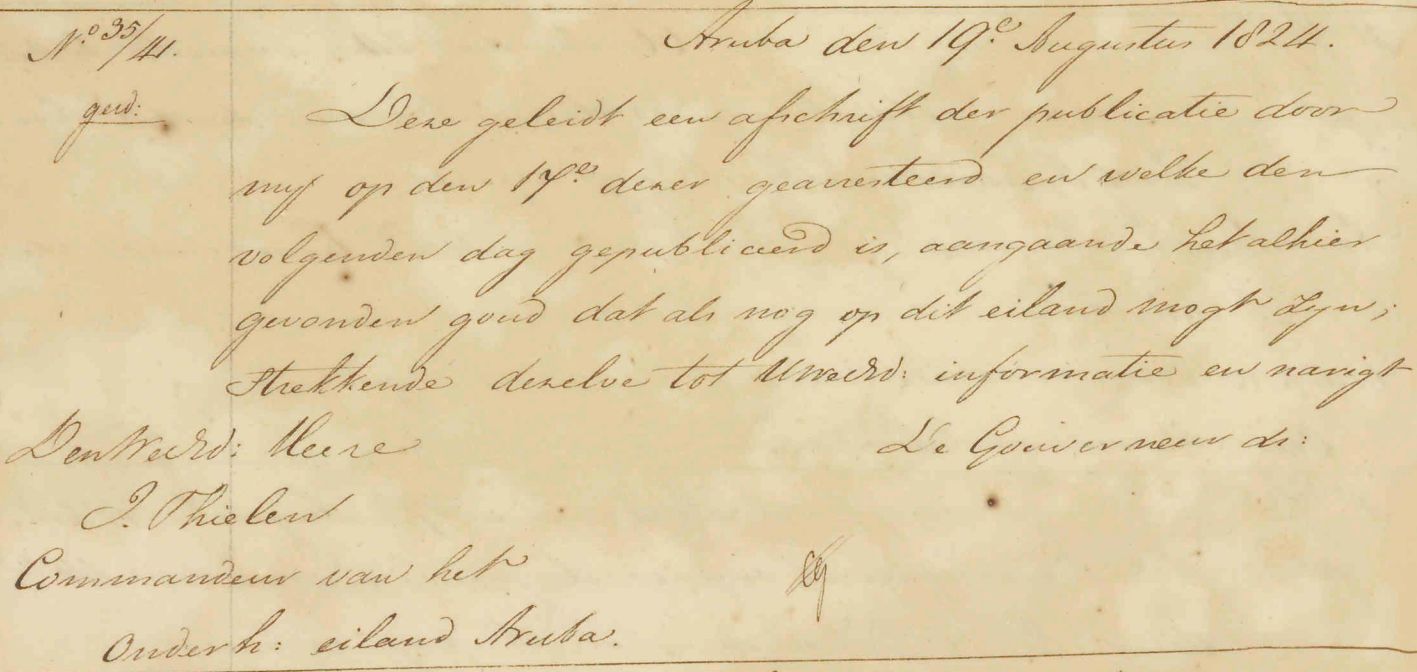 N.o 35/41. Aruba den 19.e Augustus 1824.
gew: Deze geleidt een afschrift der publicatie door
my op den 17.e dezer gearresteerd en welke den
volgenden dag gepubliceerd is, aangaande het alhier
gevonden goud dat als nog op dit eiland mogt zyn;
strekkende dezelve tot UWeEd: informatie en narigt
Den WelEd: Heere De Gouverneur &c:
J. Thielen
Commandeur van het
Onderh: eiland Aruba.